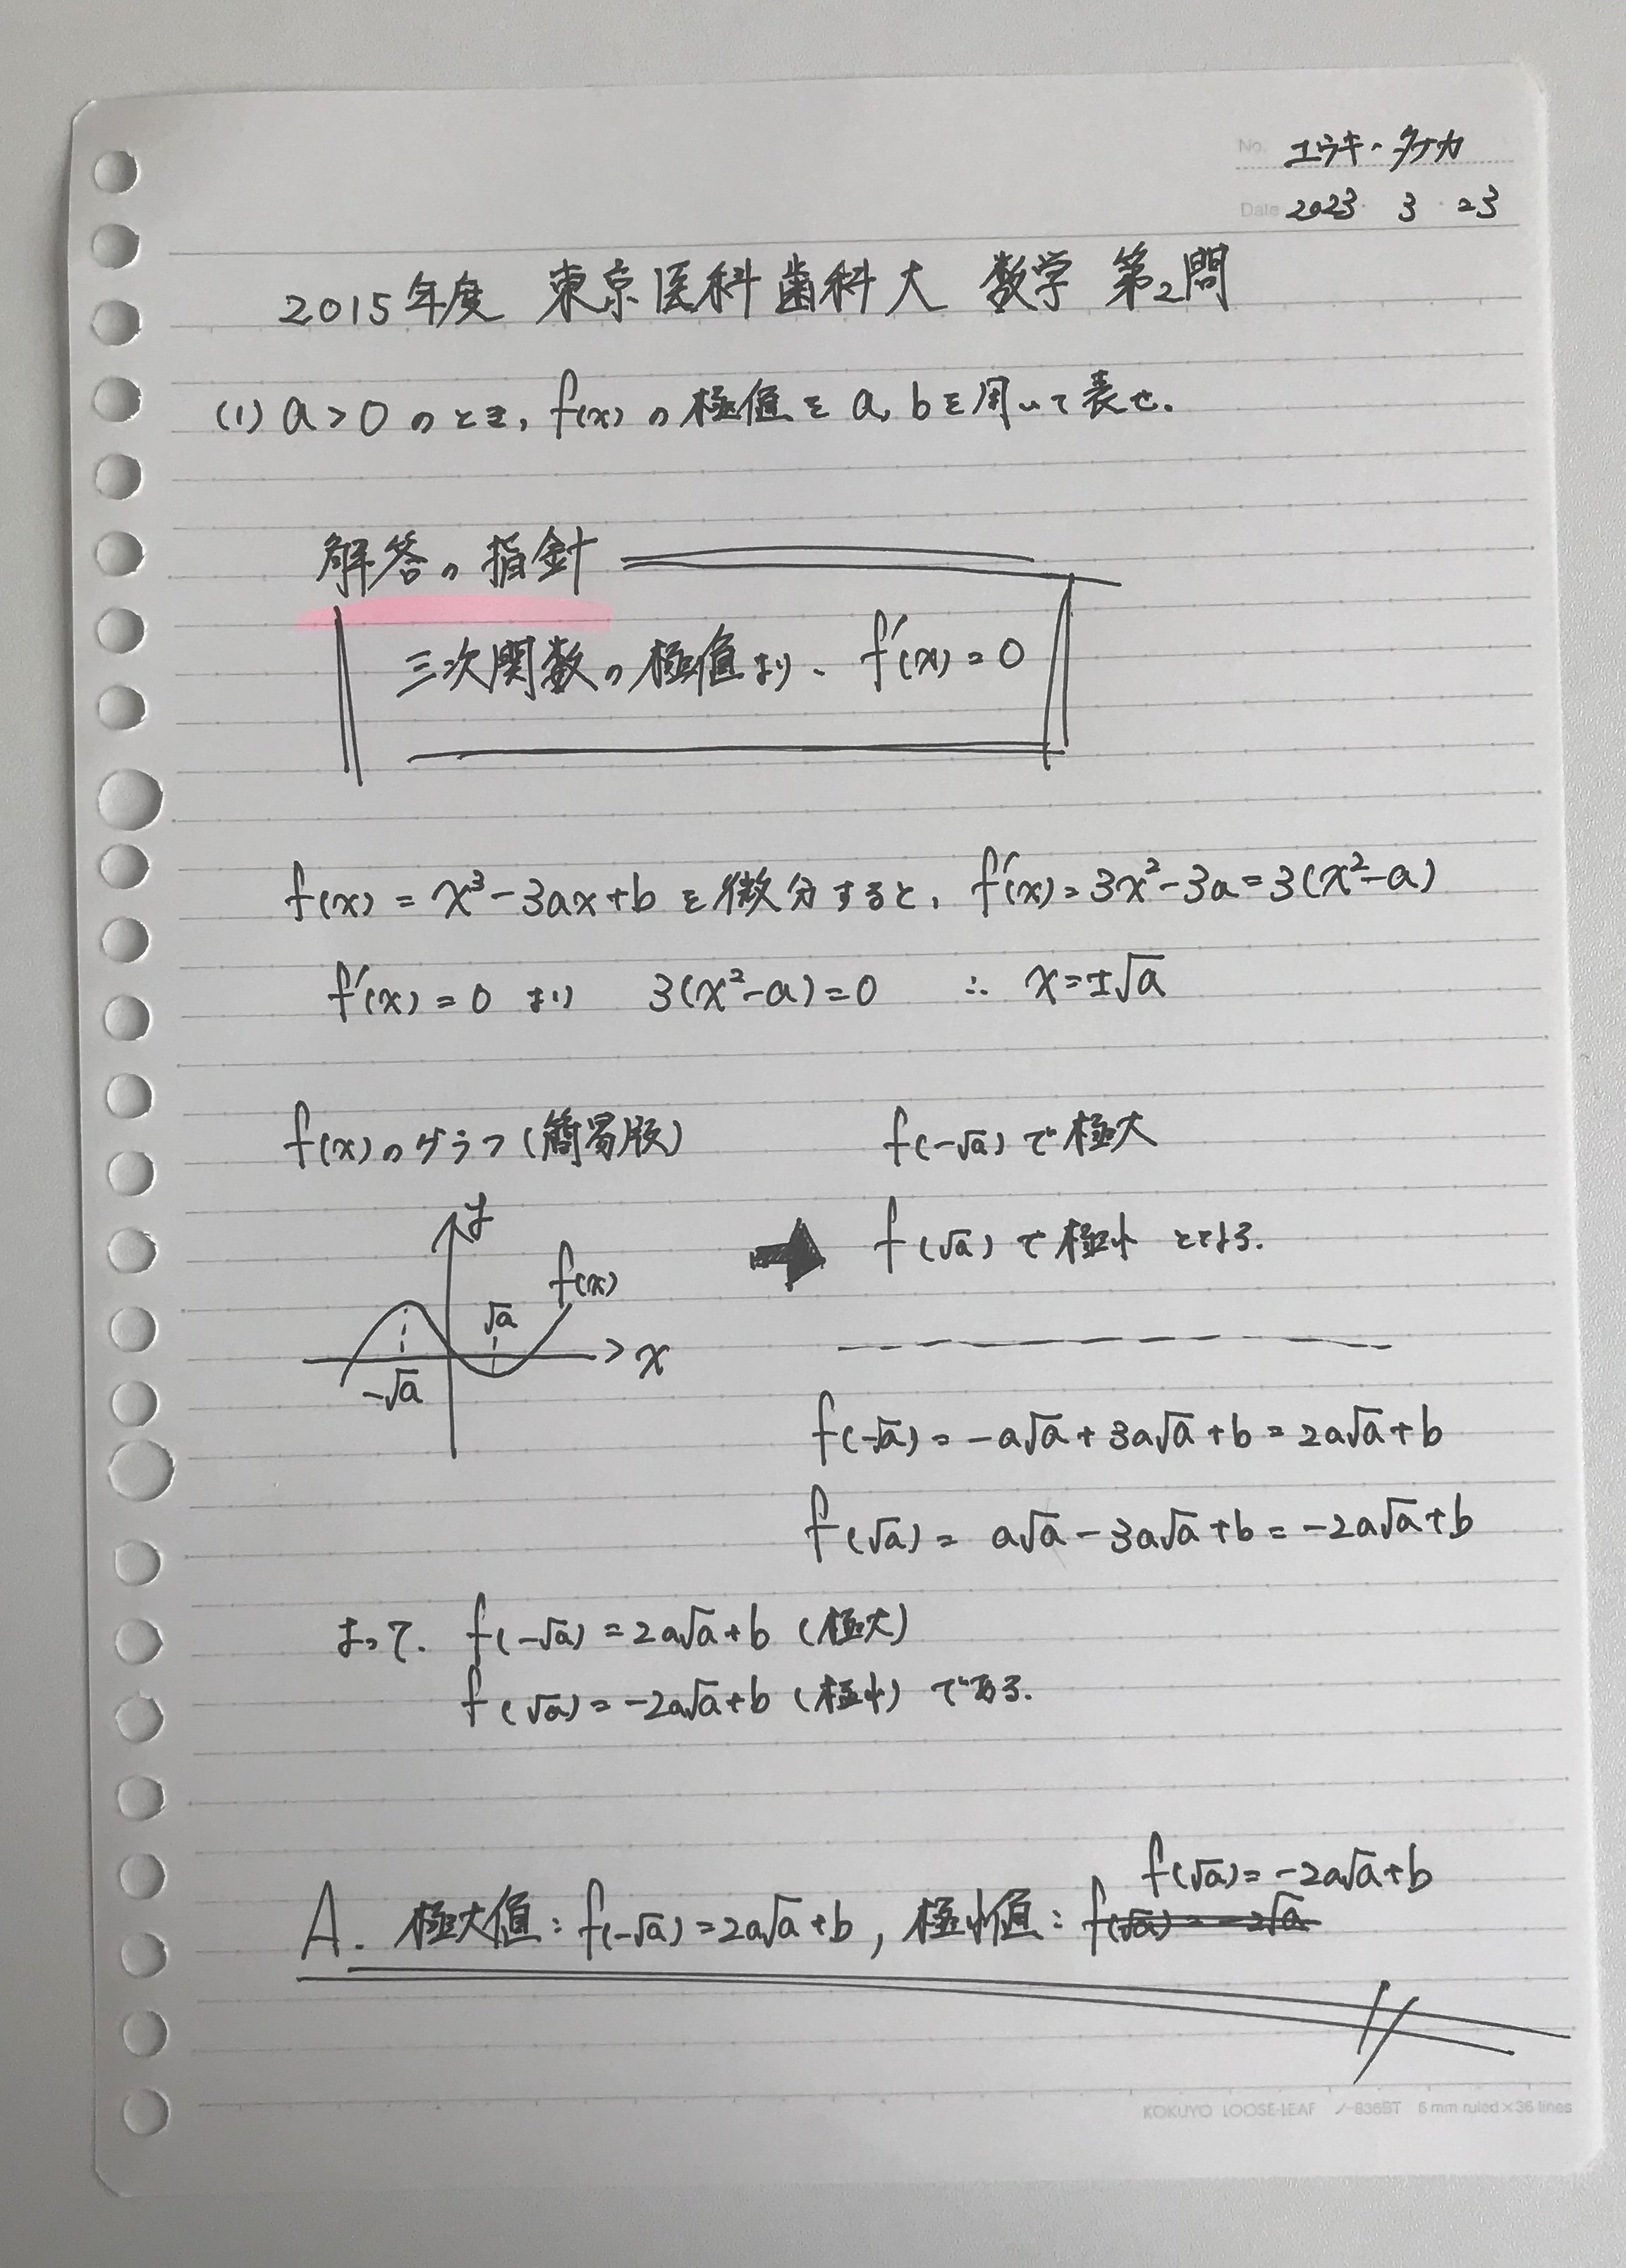 No. ユウキ・タナカ
Date 2023・3・23
2015年度 東京医科歯科大 数学 第2問
(1) a>0 のとき, f(x) の極値を a, b を用いて表せ.
解答の指針
三次関数の極値より、 f'(x)=0
f(x) = x³-3ax+b を微分すると, f'(x)=3x²-3a=3(x²-a)
f'(x)=0 より 3(x²-a)=0 ∴ x=±√a
f(x)のグラフ(簡易版)
y
f(x)
√a
x
-√a
f(-√a) で極大
f(√a) で極小 となる.
f(-√a) = -a√a+3a√a+b = 2a√a+b
f(√a) = a√a-3a√a+b = -2a√a+b
よって. f(-√a) = 2a√a+b (極大)
f(√a) = -2a√a+b (極小) である.
f(√a)= -2a√a+b
A. 極大値: f(-√a)=2a√a+b, 極小値: f(√a) = -2√a
KOKUYO LOOSE-LEAF ノ-836BT 6 mm ruled×36 lines